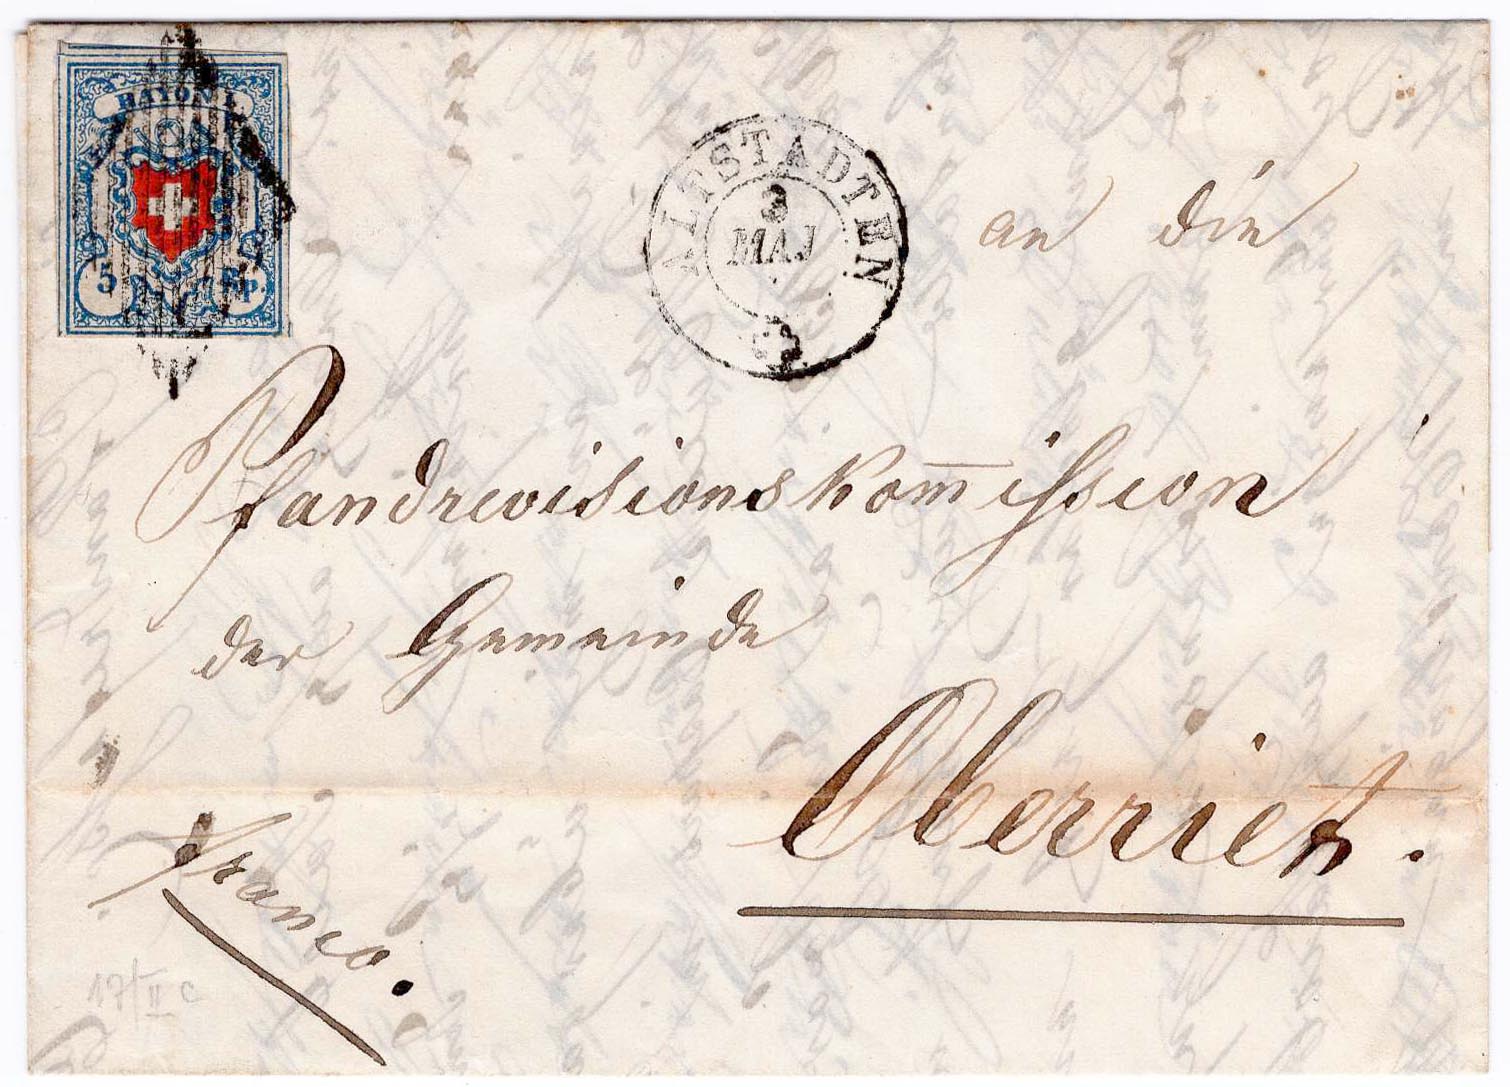 RAYON I.
5 Rp.
ALTSTÄDTEN
3
MAJ
an die
Pfandrevisionskom̅ission
der Gemeinde
Oberriet.
franco.
17/II c